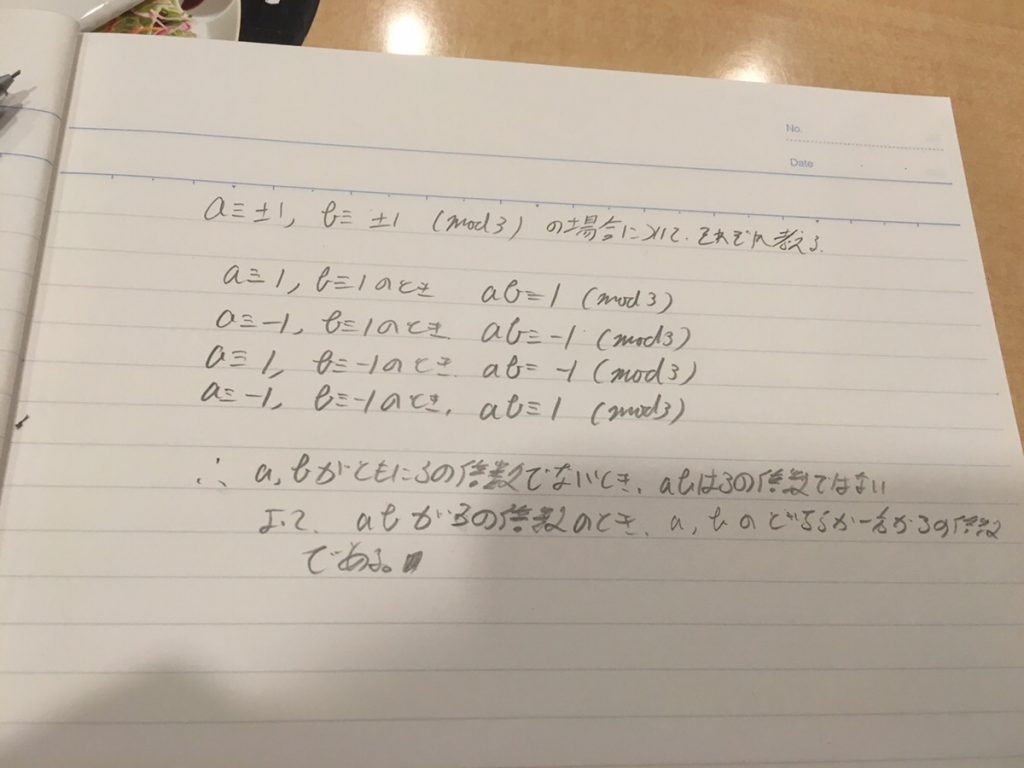 No.
Date
a≡±1, b≡±1 (mod3) の場合について、それぞれ考える.
a≡1, b≡1のとき ab≡1 (mod3)
a≡-1, b≡1のとき ab≡-1 (mod3)
a≡1, b≡-1のとき. ab≡-1 (mod3)
a≡-1, b≡-1のとき, ab≡1 (mod3)
∴ a,bがともに3の倍数でないとき、abは3の倍数ではない
よって、abが3の倍数のとき、a,bのどちらか一方が3の倍数
である。■